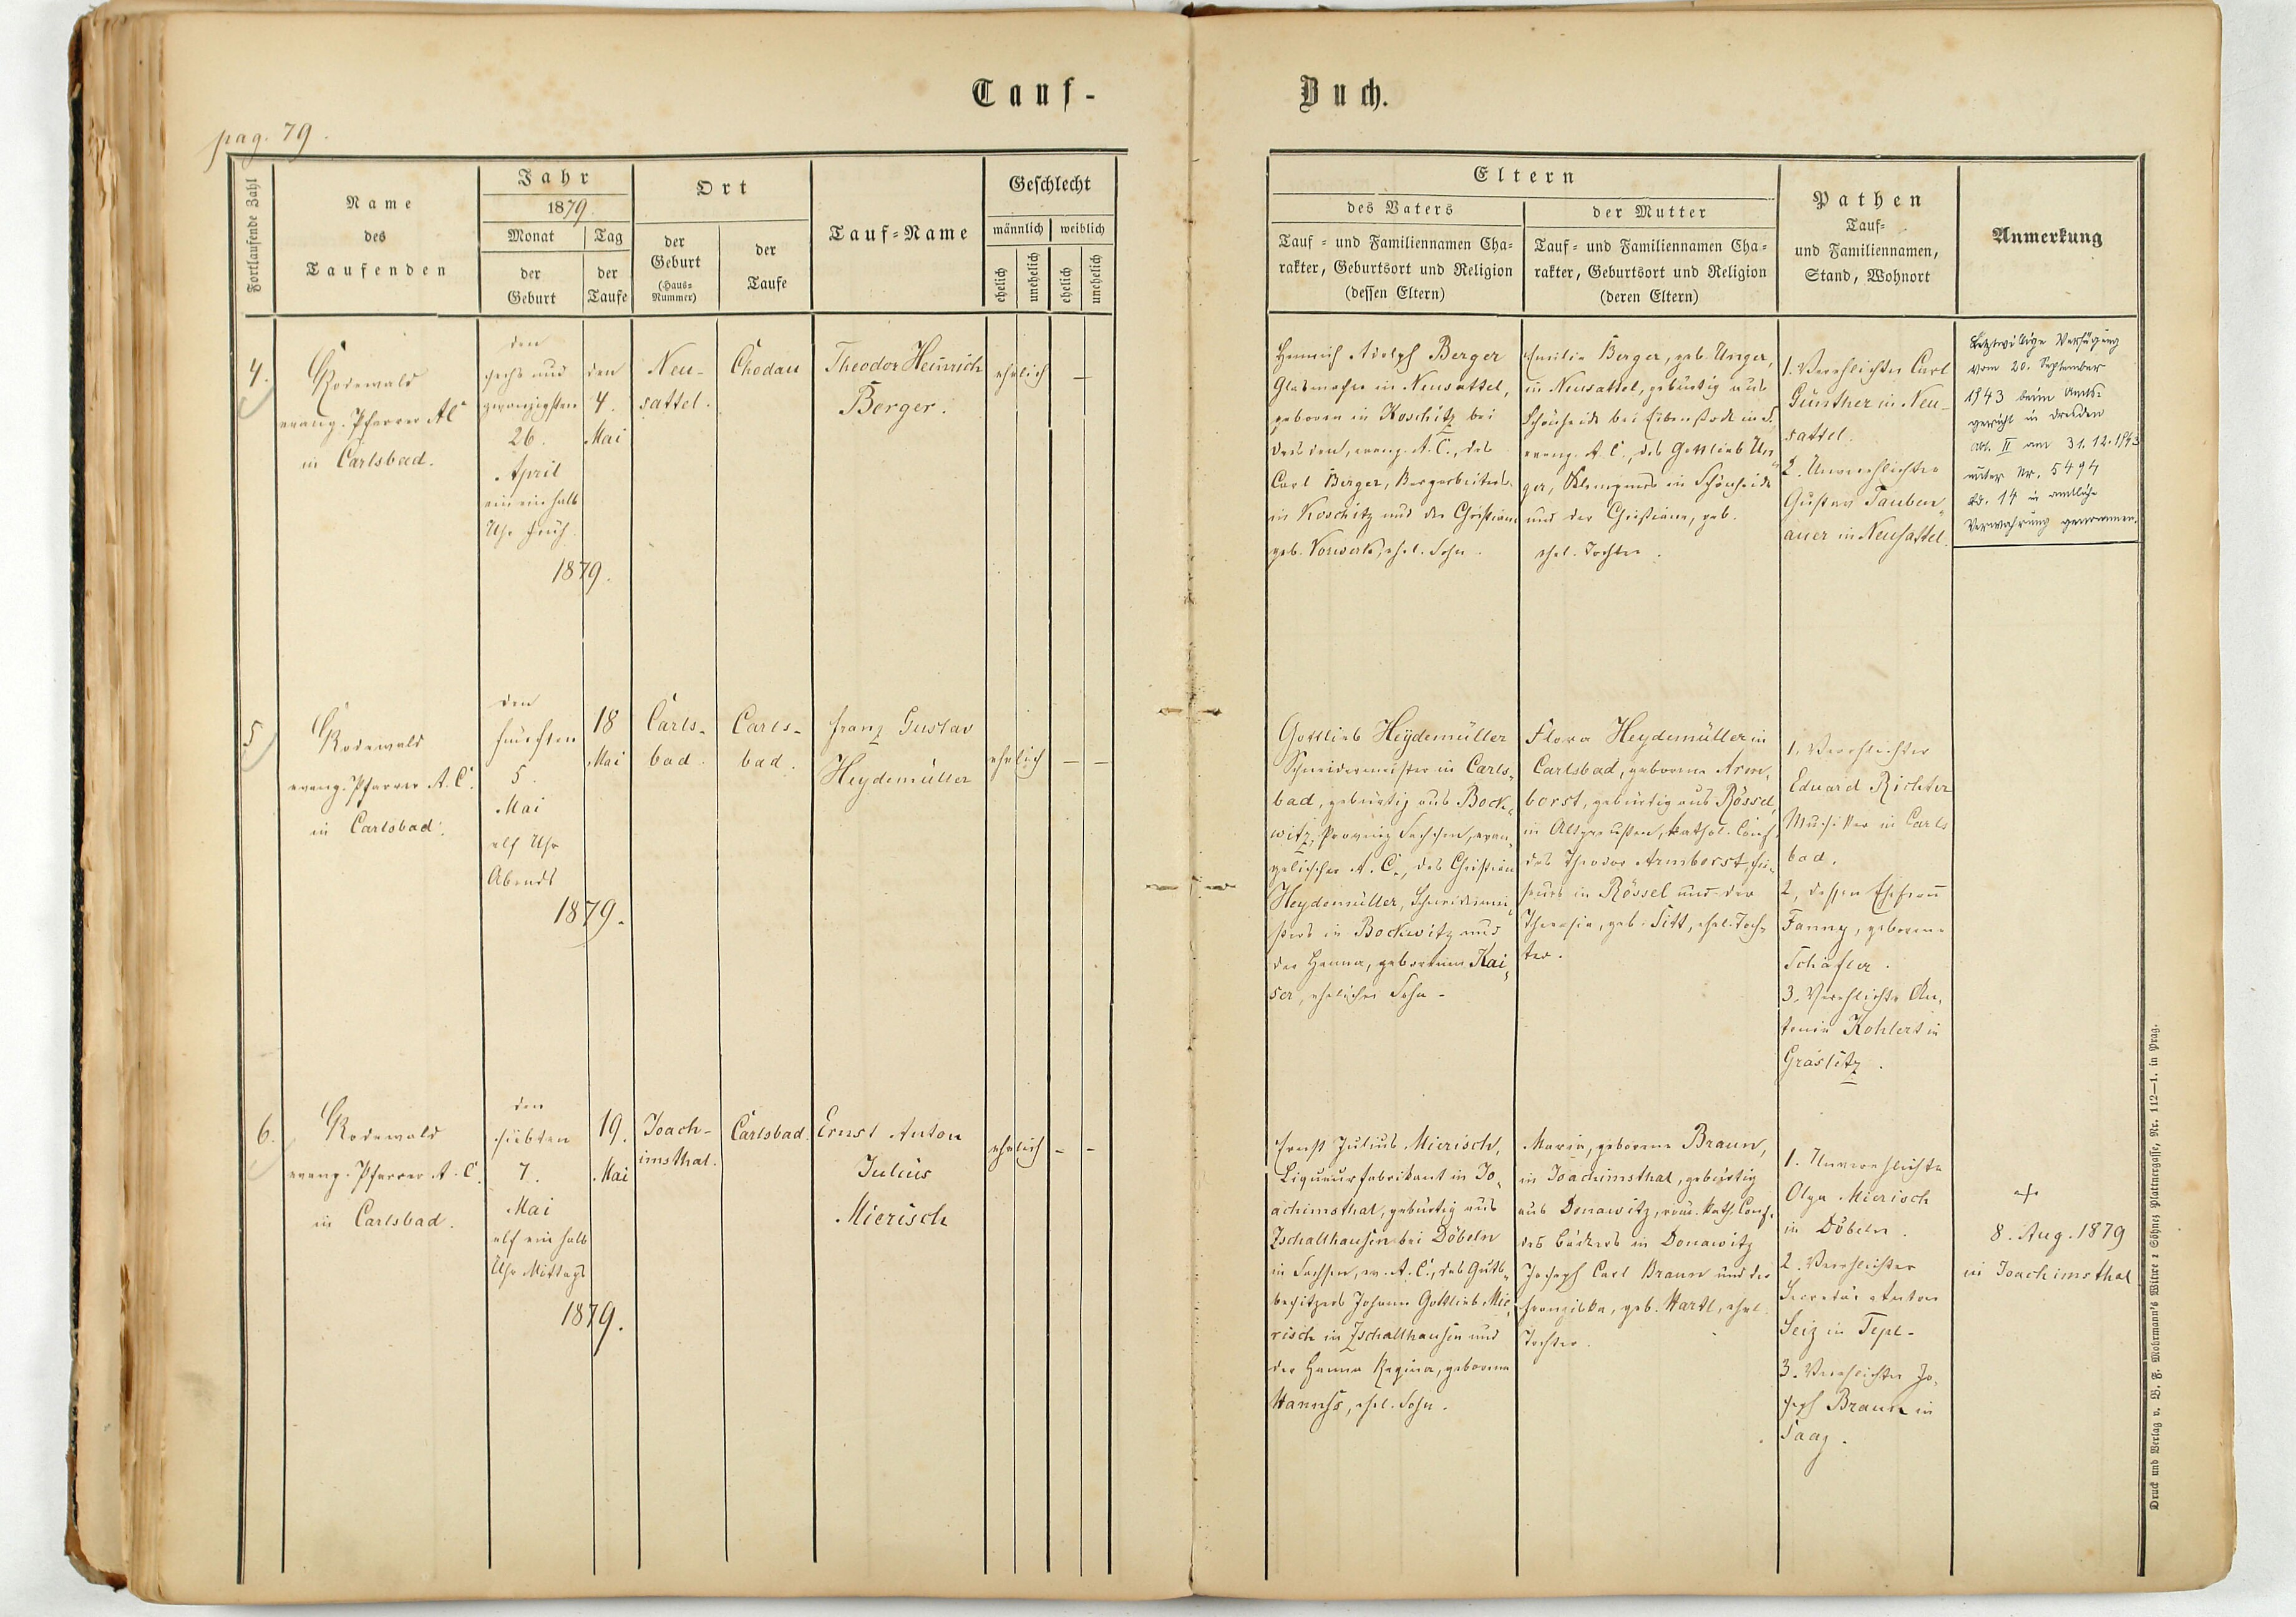 Tauf-
Buch.
pag. 79.
Fortlaufende Zahl
Name
des
Taufenden
Jahr
1879.
Monat
Tag
der
Geburt
der
Taufe
Ort
der
Geburt
(Haus-
Nummer)
der
Taufe
Tauf-Name
Geschlecht
männlich
weiblich
ehelich
unehelich
ehelich
unehelich
Eltern
des Vaters
Tauf- und Familiennamen Cha-
rakter, Geburtsort und Religion
(dessen Eltern)
der Mutter
Tauf- und Familiennamen Cha-
rakter, Geburtsort und Religion
(deren Eltern)
Pathen
Tauf-
und Familiennamen,
Stand, Wohnort
Anmerkung
4.
Rodewald
evang. Pfarrer AC
in Carlsbad.
den
sechs und
zwanzigsten
26.
April
ein ein halb
Uhr früh.
1879.
den
4.
Mai
Neu-
sattel.
Chodau
Theodor Heinrich
Berger.
ehelich
—
Heinrich Adolph Berger
in Neusattel,
geboren in Koschitz bei
Dresden, evang. A. C., des
Carl Berger, Bergarbeiters
in Koschitz und der Christiane
geb. Vorwerk, ehel. Sohn.
Emilie Berger, geb. Unger,
in Neusattel, gebürtig aus
Schönheide bei Eibenstock in S.
evang. A. C., des Gottlieb Un-
ger, Klempners in Schönheide
und der Christiane, geb.
ehel. Tochter.
1. Verehlichter Carl
Günther in Neu-
sattel.
2. Unverehlichter
Gustav Tauben-
auer in Neusattel.
Letztwillige Verfügung
vom 20. September
1943 beim Amts-
gericht in Dresden
Abt. II am 31.12.1943
unter Nr. 5494
14 in amtliche
Verwahrung genommen.
5
Rodewald
evang. Pfarrer A. C.
in Carlsbad.
den
fünften
5.
Mai
elf Uhr
Abends
1879.
18
Mai
Carls-
bad.
Carls-
bad.
Franz Gustav
Heydemüller
ehelich
— —
Gottlieb Heydemüller
Schneidermeister in Carls-
bad, gebürtig aus Bock-
witz, Provinz Sachsen, evan-
gelischer A. C., des Christian
Heydemüller, Schneidermei-
sters in Bockwitz und
der Hanna, geborenen Kai-
ser, ehelicher Sohn -
Flora Heydemüller in
Carlsbad, geborene Arm-
borst, gebürtig aus Rössel,
in Altpreußen, kathol. Conf.
des Theodor Armborst, Fri-
seurs in Rössel und der
Theresia, geb. Sitt, ehel. Toch-
ter.
1. Verehlichter
Eduard Richter
Musiker in Carls
bad.
2, dessen Ehefrau
Fanny, geborene
Schäfler.
3. Verehlichte An-
tonie Kohlert in
Graslitz.
6.
Rodewald
evang. Pfarrer A. C.
in Carlsbad.
den
siebten
7.
Mai
elf ein halb
Uhr Mittags
1879.
19.
Mai
Joach-
imsthal.
Carlsbad.
Ernst Anton
Julius
Mierisch
ehelich
- -
Ernst Julius Mierisch,
Liqueurfabrikant in Jo-
achimsthal, gebürtig aus
Zschallhausen bei Döbeln
in Sachsen, ev. A. C., des Guts-
besitzers Johann Gottlieb Mie-
risch in Zschallhausen und
der Hanna Regina, geborene
ehel. Sohn.
Maria, geborene Braun,
in Joachimsthal, gebürtig
aus Donawitz, röm. kath. Conf.
des Bäckers in Donawitz
Joseph Carl Braun und der
Franziska, geb. Hartl, ehel.
Tochter.
1. Unverehlichte
Olga Mierisch
in Döbeln.
2. Verehlichter
Secretär Anton
Seiz in Tepl-
3. Verehlichter Jo-
seph Braun in
Saaz.
8. Aug. 1879
in Joachimsthal
Druck und Verlag v. B. F. Mohrmann's Witwe &amp; Söhne, Plattnergasse, Nr. 112—1. in Prag.